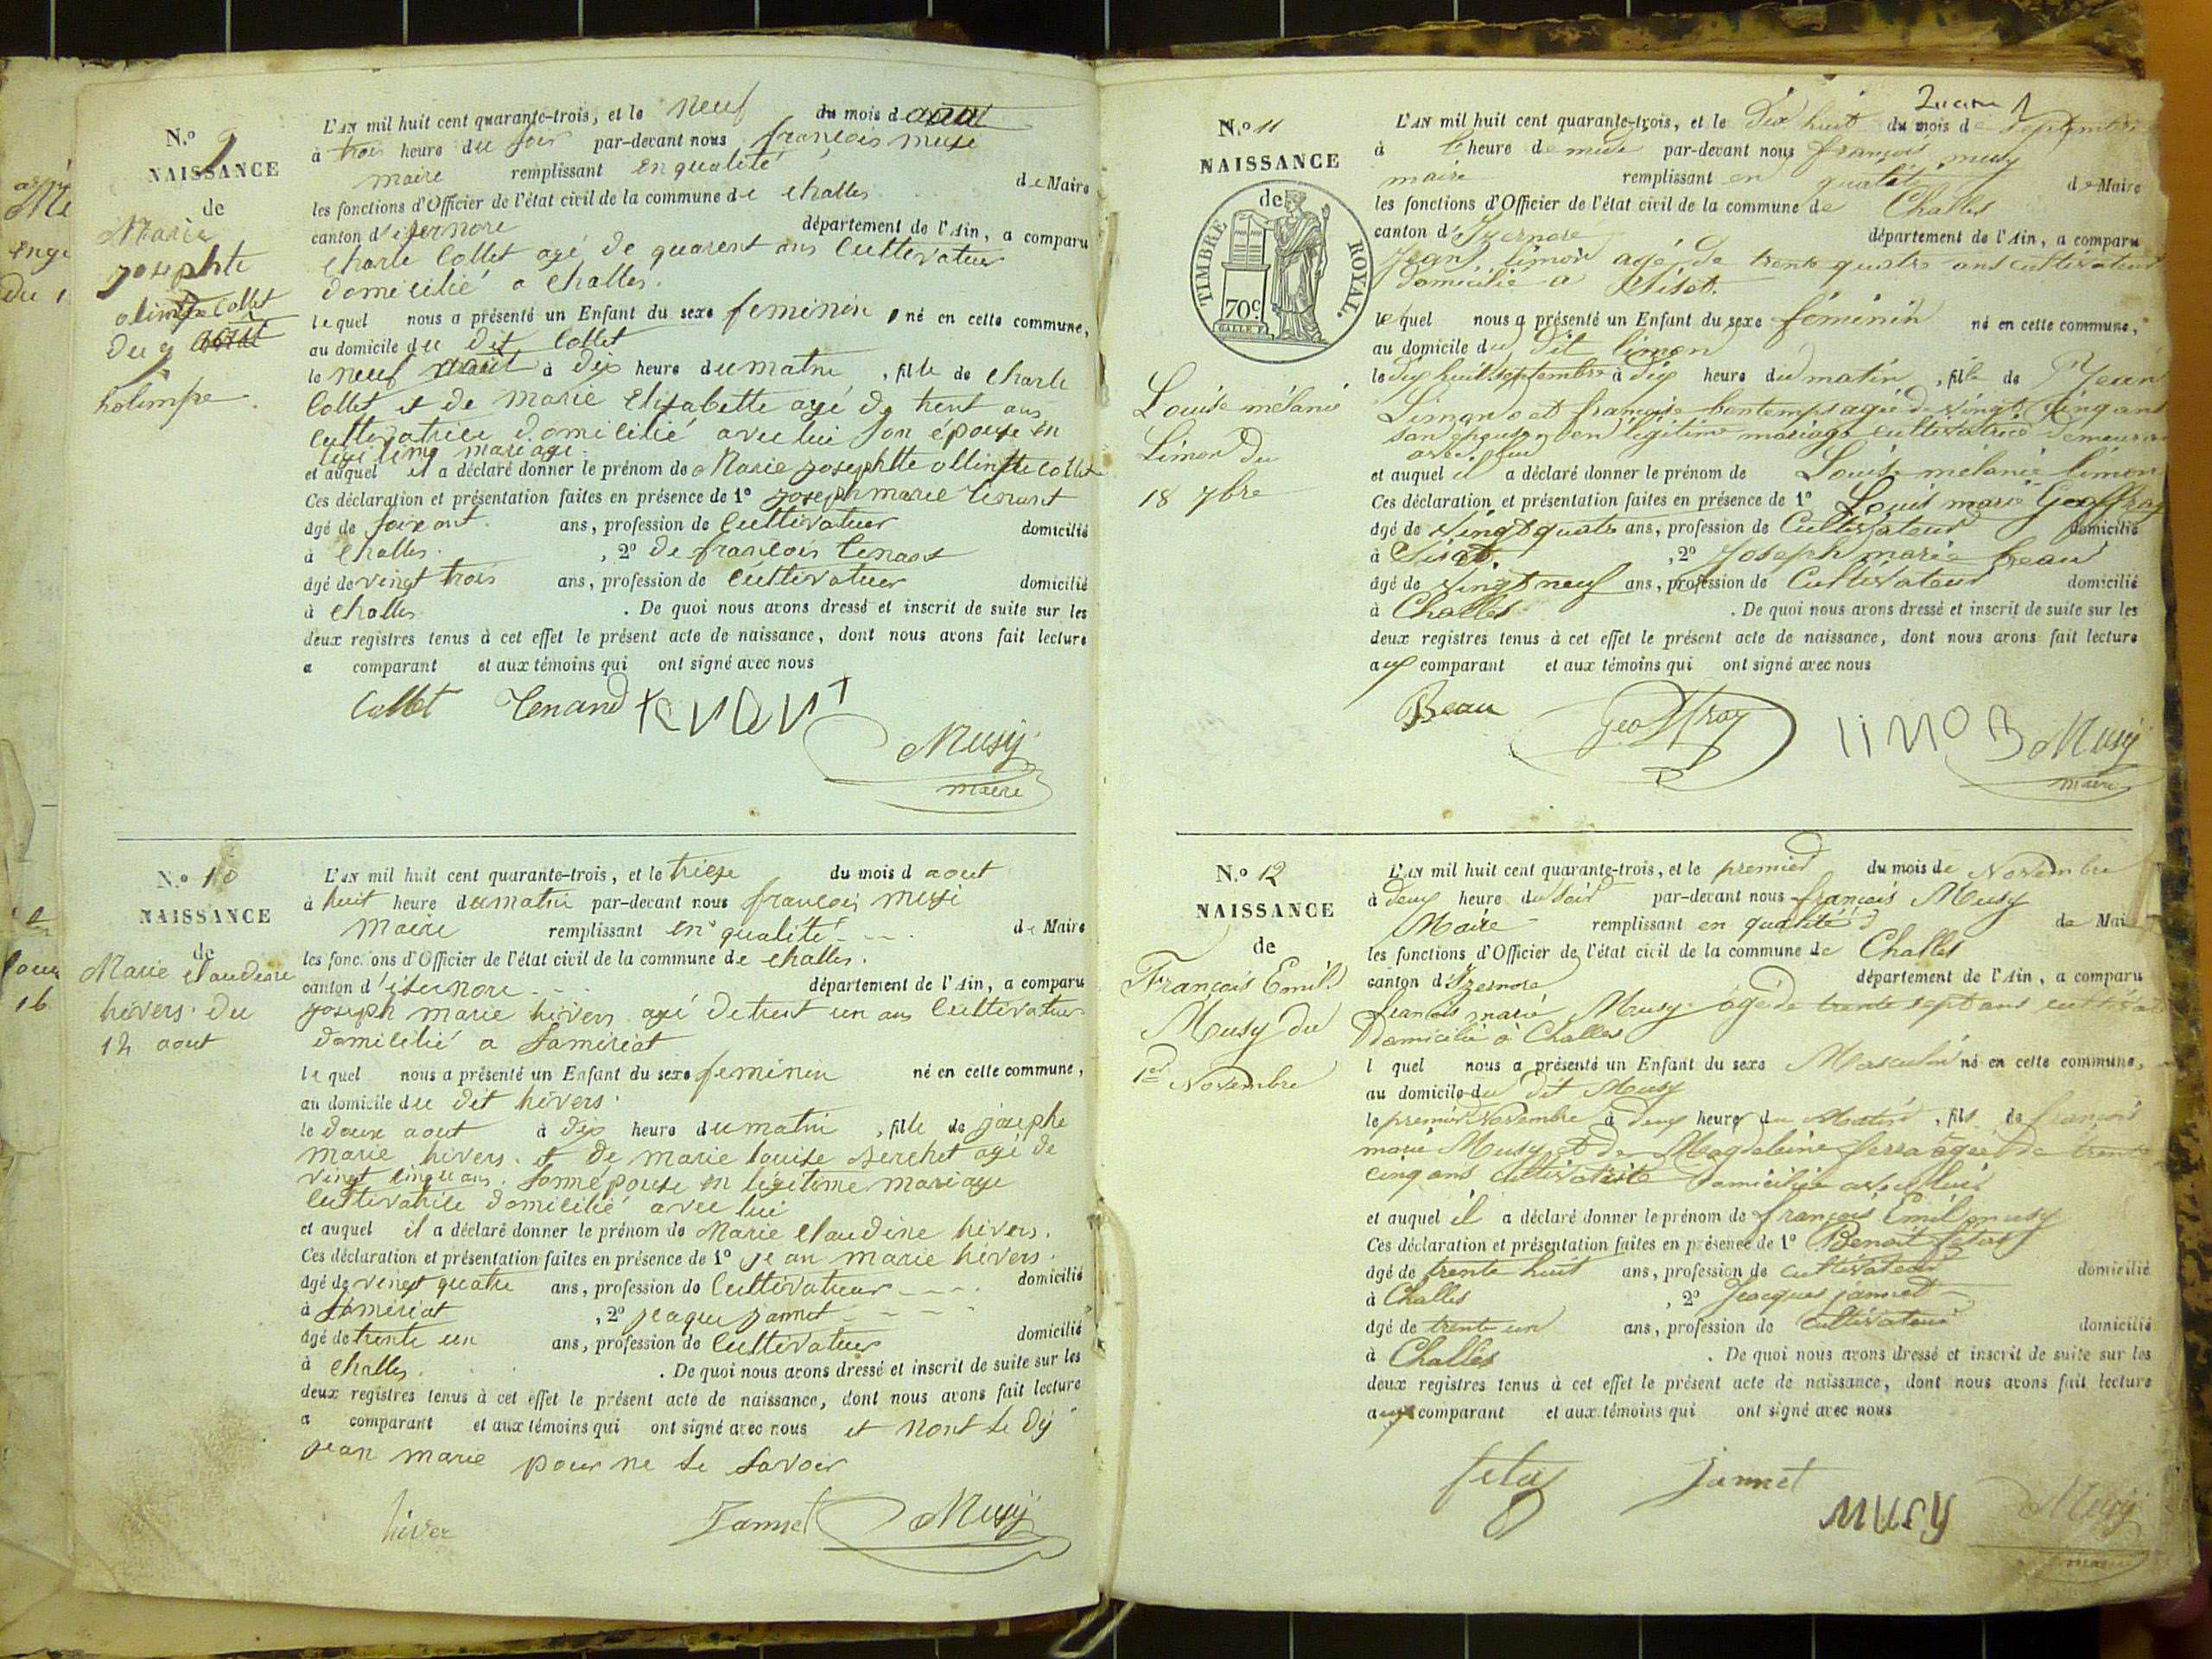 N.º 9
NAISSANCE
de
Marie
josephte
olimpe Collet
du 9 août
holimpe
L'AN mil huit cent quarante-trois, et le neuf du mois d août
à trois heure du soir par-devant nous françois musi
maire remplissant en qualité de Maire
les fonctions d'Officier de l'état civil de la commune de challes
canton d' département de l'Ain, a comparu
charle Collet agé de quarent ans Cultivateur
domicilié a challes.
lequel nous a présenté un Enfant du sexe feminin né en cette commune,
au domicile du dit Collet
le neuf août à dix heure du matin , fille de charle
Collet et de marie Elisabette agé de trent ans
Cultivatrice domicilié avec lui son épouse en
legitime mariage
et auquel il a déclaré donner le prénom de Marie josephtte ollimpe collet
Ces déclaration et présentation faites en présence de 1º joseph marie tenant
âgé de soixant ans, profession de Cultivateur domicilié
à challes. , 2º de françois tenant
âgé de vingt trois ans, profession de Cultivateur domicilié
à challes . De quoi nous avons dressé et inscrit de suite sur les
deux registres tenus à cet effet le présent acte de naissance, dont nous avons fait lecture
a comparant et aux témoins qui ont signé avec nous
Collet Tenand
Musy
maire
N.º 10
NAISSANCE
de
Marie claudine
hivers du
12 aout
L'AN mil huit cent quarante-trois, et le trieze du mois d aout
à huit heure du matin par-devant nous françois musi
maire remplissant en qualité de Maire
les fonctions d'Officier de l'état civil de la commune de challes.
canton d' département de l'Ain, a comparu
joseph marie hivers agé de trent un ans Cultivateur
domicilié a Samériat
lequel nous a présenté un Enfant du sexe feminin né en cette commune,
au domicile du dit hivers
le douze aout à dix heure du matin , fille de josephe
marie hivers et de marie louise Berchet agé de
vingt cinq ans. son épouse en legitime mariage
Cultivatrice domicilié avec lui
et auquel il a déclaré donner le prénom de Marie claudine hivers.
Ces déclaration et présentation faites en présence de 1º jean marie hivers.
âgé de vingt quatre ans, profession de Cultivateur domicilié
à Samériat , 2º jaque jannet
âgé de trente un ans, profession de Cultivateur domicilié
à challes. . De quoi nous avons dressé et inscrit de suite sur les
deux registres tenus à cet effet le présent acte de naissance, dont nous avons fait lecture
a comparant et aux témoins qui ont signé avec nous et nont le dy
jean marie pour ne le savoir
hiver Jannet Musy
N.º 11
NAISSANCE
de
TIMBRE ROYAL.
70c
Louise mélanie
Limon du
18 7bre
L'AN mil huit cent quarante-trois, et le dix huit du mois de septembre
à heure de par-devant nous françois musy
maire remplissant en qualité de Maire
les fonctions d'Officier de l'état civil de la commune de Challes
canton d'Izernore département de l'Ain, a comparu
Jean limon agé de trente quatre ans cultivateur
domicilié a
lequel nous a présenté un Enfant du sexe féminin né en cette commune,
au domicile du dit limon
le dix huit septembre à dix heure du matin , fille de Jean
Limon et françoise bontemps agée de vingt cinq ans
son epouse en légitime mariage cultivatrice demeurant
avec lui
et auquel il a déclaré donner le prénom de Louise mélanie limon
Ces déclaration et présentation faites en présence de 1º Louis marie Geoffray
âgé de vingt quatre ans, profession de Cultivateur domicilié
à , 2º Joseph marie beau
âgé de vingt neuf ans, profession de Cultivateur domicilié
à Challes . De quoi nous avons dressé et inscrit de suite sur les
deux registres tenus à cet effet le présent acte de naissance, dont nous avons fait lecture
aux comparant et aux témoins qui ont signé avec nous
Beau Geoffray Musy
maire
N.º 12
NAISSANCE
de
François Emil
Musy du
1er Novembre
L'AN mil huit cent quarante-trois, et le premier du mois de Novembre
à deux heure du soir par-devant nous françois Musy
Maire remplissant en qualité de Maire
les fonctions d'Officier de l'état civil de la commune de Challes
canton d'Izernore département de l'Ain, a comparu
françois marie Musy agé de trente sept ans
domicilié à Challes
l quel nous a présenté un Enfant du sexe Masculin né en cette commune,
au domicile du dit Musy
le premier Novembre à deux heure du Matin , fils de françois
marie Musy et de Magdeleine ferra agée de trente
cinq ans cultivatrice domiciliée avec lui
et auquel il a déclaré donner le prénom de françois Emil musy
Ces déclaration et présentation faites en présence de 1º Benoit
âgé de trente huit ans, profession de cultivateur domicilié
à Challes , 2º Jacques jannet
âgé de trente un ans, profession de cultivateur domicilié
à Challes . De quoi nous avons dressé et inscrit de suite sur les
deux registres tenus à cet effet le présent acte de naissance, dont nous avons fait lecture
aux comparant et aux témoins qui ont signé avec nous
jannet
MUSY Musy
maire